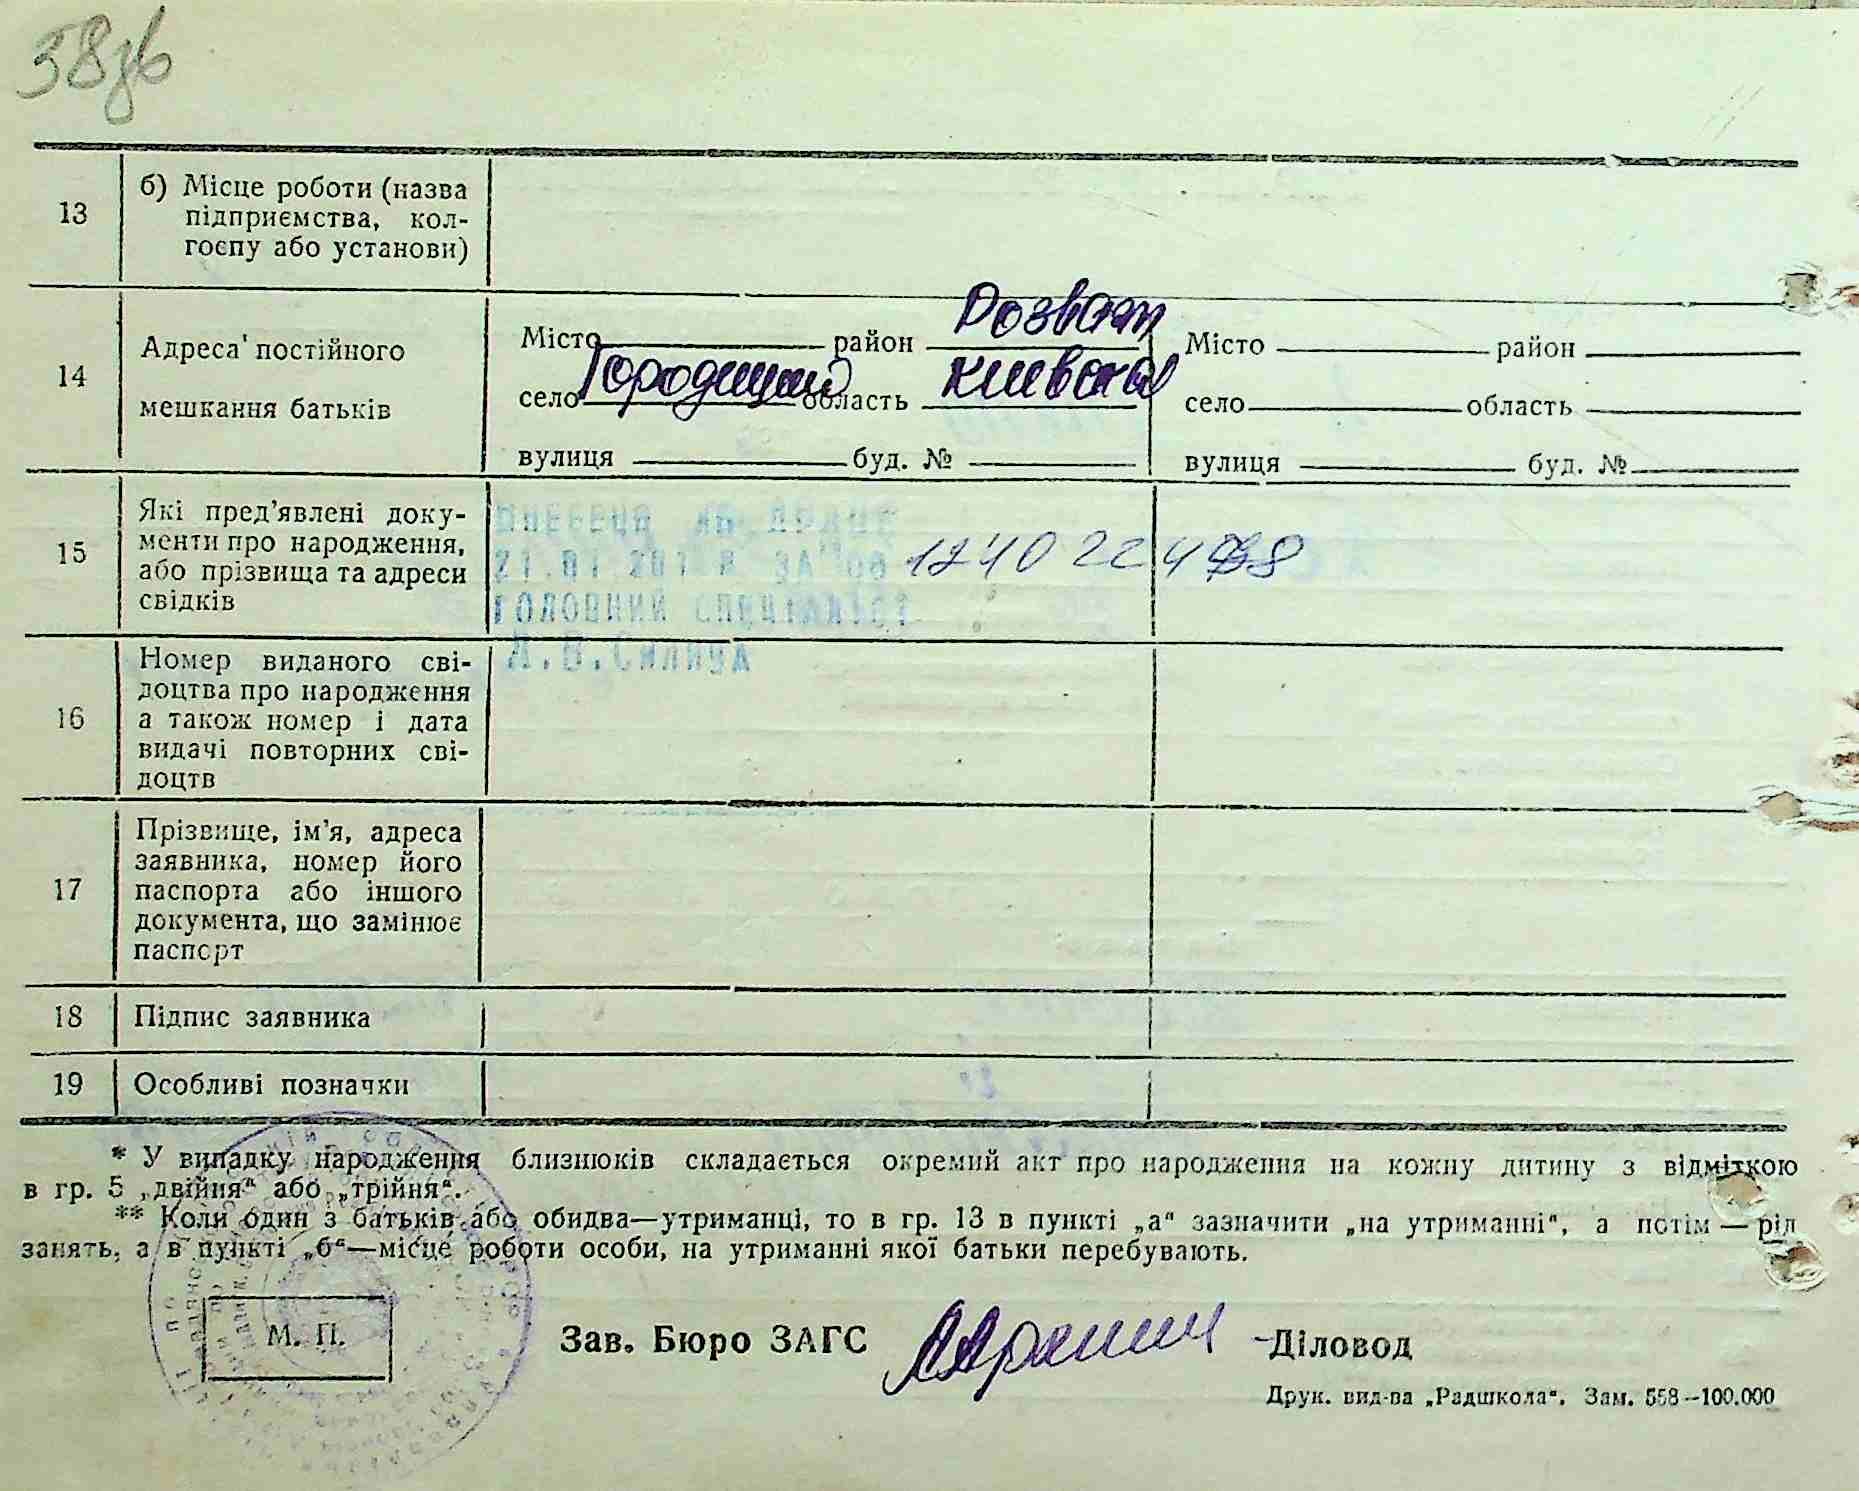 58зв
13
б) Місце роботи (назва
підприємства, кол-
госпу або установи)
14
Адреса постійного
мешкання батьків
Місто район Розваж
село Городищ область Київська
вулиця буд. №
Місто район
село область
вулиця буд. №
15
Які пред'явлені доку-
менти про народження,
або прізвища та адреси
свідків
внесено до ДРАЦС
21.01.201 за 00
головний спеціаліст
1240224
16
Номер виданого сві-
доцтва про народження
а також номер і дата
видачі повторних сві-
доцтв
17
Прізвище, ім'я, адреса
заявника, номер його
паспорта або іншого
документа, що замінює
паспорт
18
Підпис заявника
19
Особливі позначки
* У випадку народження близнюків складається окремий акт про народження на кожну дитину з відміткою
в гр. 5 „двійня“ або „трійня“.
** Коли один з батьків або обидва—утриманці, то в гр. 13 в пункті „а“ зазначити „на утриманні“, а потім—рід
занять, а в пункті „б“—місце роботи особи, на утриманні якої батьки перебувають.
М. П.
Зав. Бюро ЗАГС
Діловод
Друк. вид-ва „Радшкола“. Зам. 558—100.000